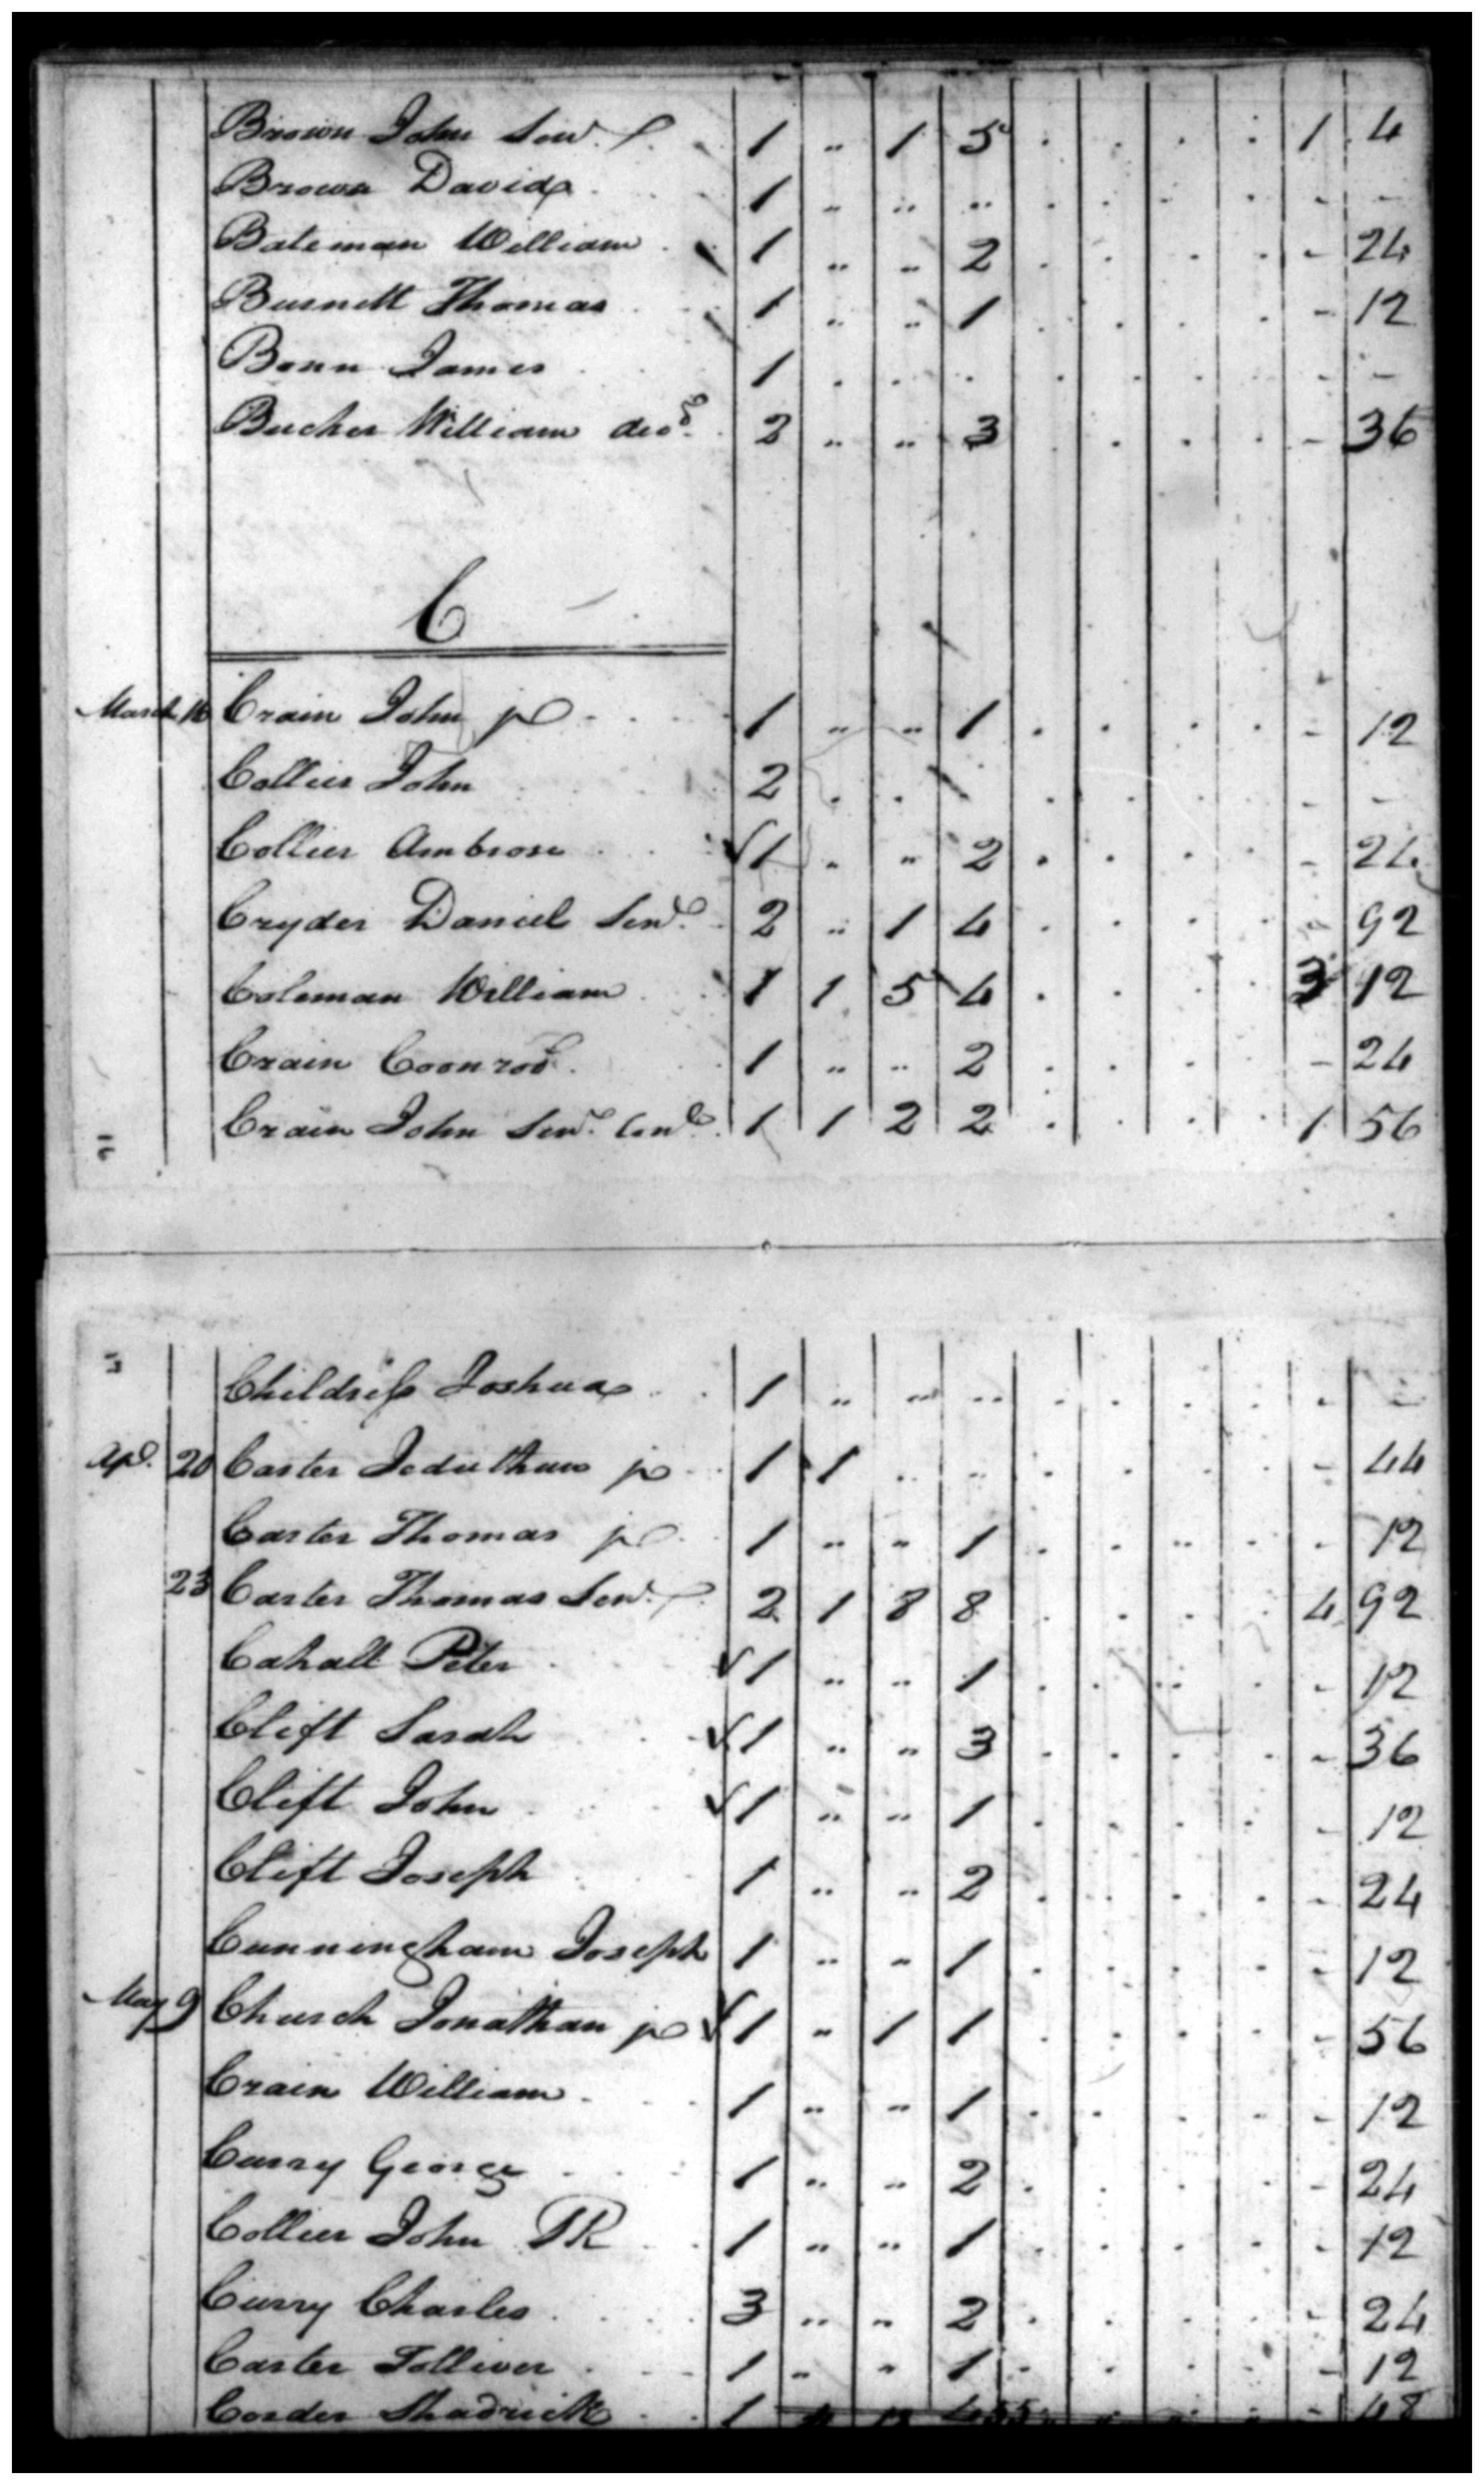 Brown John Senr. 1 .. 1 5 . . . . 1 4
Brown David 1 .. .. .. . . - . - -
Bateman William 1 .. .. 2 . . . . - 24
Burnett Thomas 1 .. .. 1 . . . . - 12
Bonn James 1 . .. . . . . . - -
William decd. 2 .. .. 3 . . . . - 36
C
March 16 Crain John jr 1 .. .. 1 . . . . - 12
Collier John 2 . . . . . . - -
Collier Ambrose 1 . .. 2 . . . . - 24
Cryder Daniel Senr. 2 .. 1 4 . . . . - 92
Coleman William 1 1 5 4 . . . . 3 12
Crain Coonrod 1 .. .. 2 . . . . - 24
Crain John Senr. 1 1 2 2 . . . . 1 56
Childress Joshua 1 .. .. .. . . . . - -
Apl. 20 Carter Jeduthun jr 1 1 .. .. . . . . - 44
Carter Thomas jr 1 .. .. 1 . . .. . - 12
23 Carter Thomas Senr. 2 1 8 8 . . . . 4 92
Cahall Peter 1 .. .. 1 . . .. . - 12
Clift Sarah 1 .. .. 3 . . . . - 36
Clift John 1 .. .. 1 . . . . - 12
Clift Joseph 1 .. .. 2 . . . . - 24
Cunningham Joseph 1 .. .. 1 . . . . - 12
May 9 Church Jonathan jr 1 .. 1 1 . . . . - 56
Crain William 1 .. .. 1 . . . . - 12
Curry George 1 .. .. 2 . . . . - 24
Collier John TR 1 .. .. 1 . . . . - 12
Curry Charles 3 .. .. 2 . . . . - 24
Carter Tolliver 1 .. .. 1 . . . . - 12
Corder Shadrick 1 48